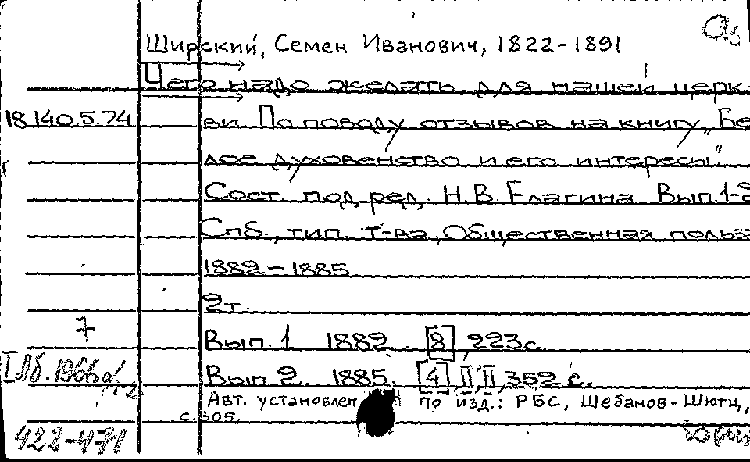 Ширский, Семен Иванович, 1822-1891
Чего надо желать для нашей церк
18.140.5.74
ви. По поводу отзывов на книгу „Бе
лое духовенство и его интересы".
Сост. под ред. Н.В. Елагина. Вып. 1-2
Спб., тип. т-ва „Общественная польза
1882-1885
2т.
7
Вып. 1. 1882. [8], 223с.
Вып. 2. 1885. [4], II, II, 352 с.
Авт. установлен по изд.: РБС, Шебанов-Шютц,
с. 305.